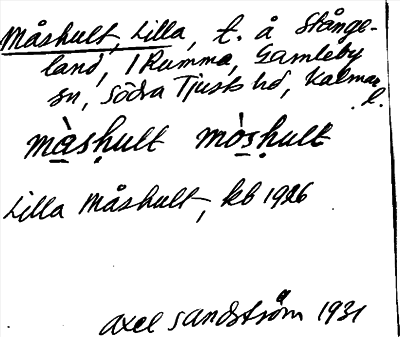 Måshult, Lilla, t. å Stånge-
land, 1 Rumma, Gamleby
sn, Södra Tjusts hd, Kalmar
l.
màsḥult mòsḥult
Lilla Måshult, kb 1926
Axel Sandström 1931